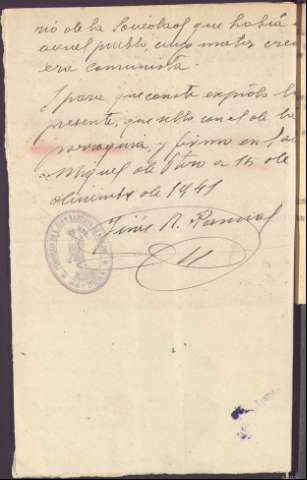 rio de la Sociedad que había
aquel pueblo, cuyo matiz creo
era comunista.
Y para que conste expido la
presente, que sello con el de la
parroquia, y firmo en San
Miguel de Otro a 15 de
diciembre de 1941
Ginés R.